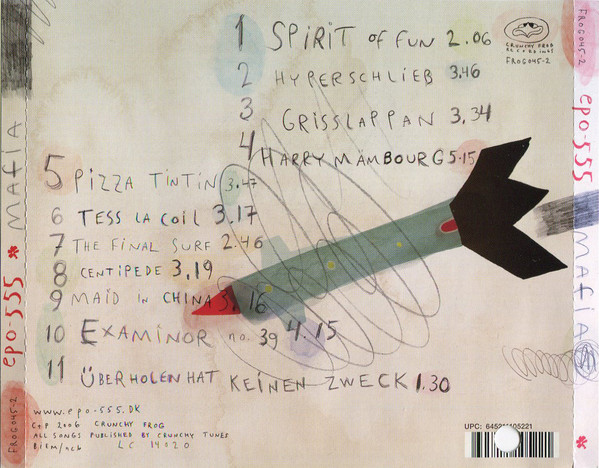 1 SPIRIT OF FUN 2.06
2 HYPERSCHLIEB 3.46
3 GRISSLAPPAN 3.34
4 HARRY MÄMBOURG 5.15
5 PIZZA TINTIN 3.47
6 TESS LA COIL 3.17
7 THE FINAL SURF 2.46
8 CENTIPEDE 3.19
9 MAID IN CHINA 3.16
10 EXAMINOR no. 39 4.15
11 ÜBERHOLEN HAT KEINEN ZWECK 1.30
www.epo-555.DK
C+P 2006 CRUNCHY FROG
ALL SONGS PUBLISHED BY CRUNCHY TUNES
BIEM/ncb LC 14020
CRUNCHY FROG
RECORDINGS
FROG045-2
UPC:
epo-555 * MAFIA
FROG045-2
FROG045-2
epo-555 * MAFIA